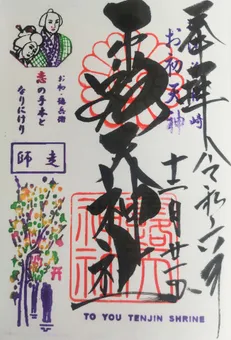 奉拝
令和六年
十二月廿一日
お初天神
露天神社
お初・徳兵衛
恋の手本と
なりにけり
師走
TO YOU TENJIN SHRINE